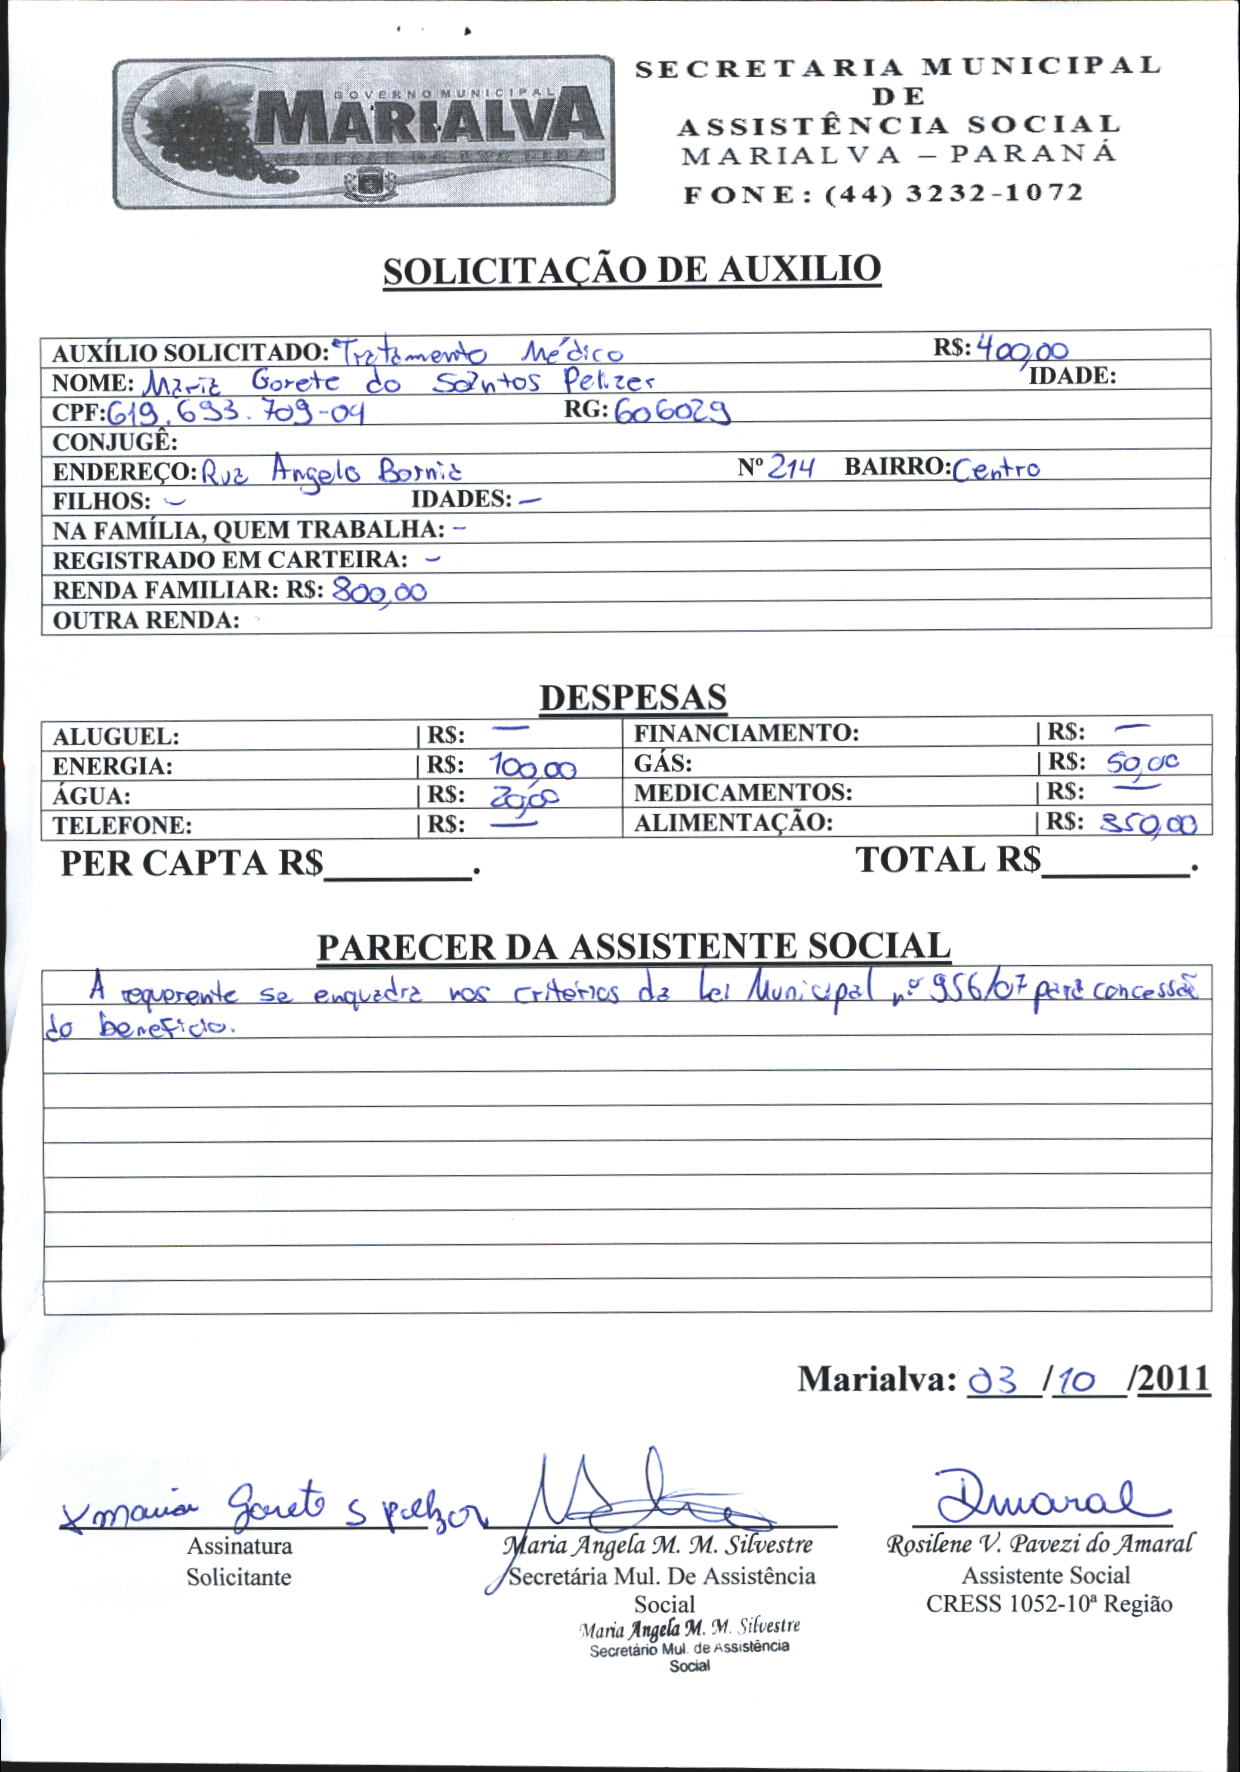 GOVERNO MUNICIPAL
MARIALVA
SECRETARIA MUNICIPAL
DE
ASSISTÊNCIA SOCIAL
MARIALVA – PARANÁ
FONE: (44) 3232-1072
SOLICITAÇÃO DE AUXILIO
AUXÍLIO SOLICITADO: Tratamento Médico R$: 400,00
NOME: Maria Gorete do Santos Pelizer IDADE:
CPF: 619.693.709-04 RG: 606029
CONJUGÊ:
ENDEREÇO: Rua Angelo Bornia Nº 214 BAIRRO: Centro
FILHOS: – IDADES: –
NA FAMÍLIA, QUEM TRABALHA: –
REGISTRADO EM CARTEIRA: –
RENDA FAMILIAR: R$: 800,00
OUTRA RENDA:
DESPESAS
ALUGUEL: | R$: — FINANCIAMENTO: | R$: —
ENERGIA: | R$: 100,00 GÁS: | R$: 50,00
ÁGUA: | R$: 20,00 MEDICAMENTOS: | R$: —
TELEFONE: | R$: — ALIMENTAÇÃO: | R$: 350,00
PER CAPTA R$________. TOTAL R$________.
PARECER DA ASSISTENTE SOCIAL
A requerente se enquadra nos critérios da Lei Municipal nº 956/07 para concessão
do beneficio.
Marialva: 03 /10 /2011
x maria Gorete S pelizer Dmaral
Assinatura Maria Angela M. M. Silvestre Rosilene V. Pavezi do Amaral
Solicitante Secretária Mul. De Assistência Assistente Social
Social CRESS 1052-10ª Região
Maria Angela M. M. Silvestre
Secretário Mul. de Assistência
Social